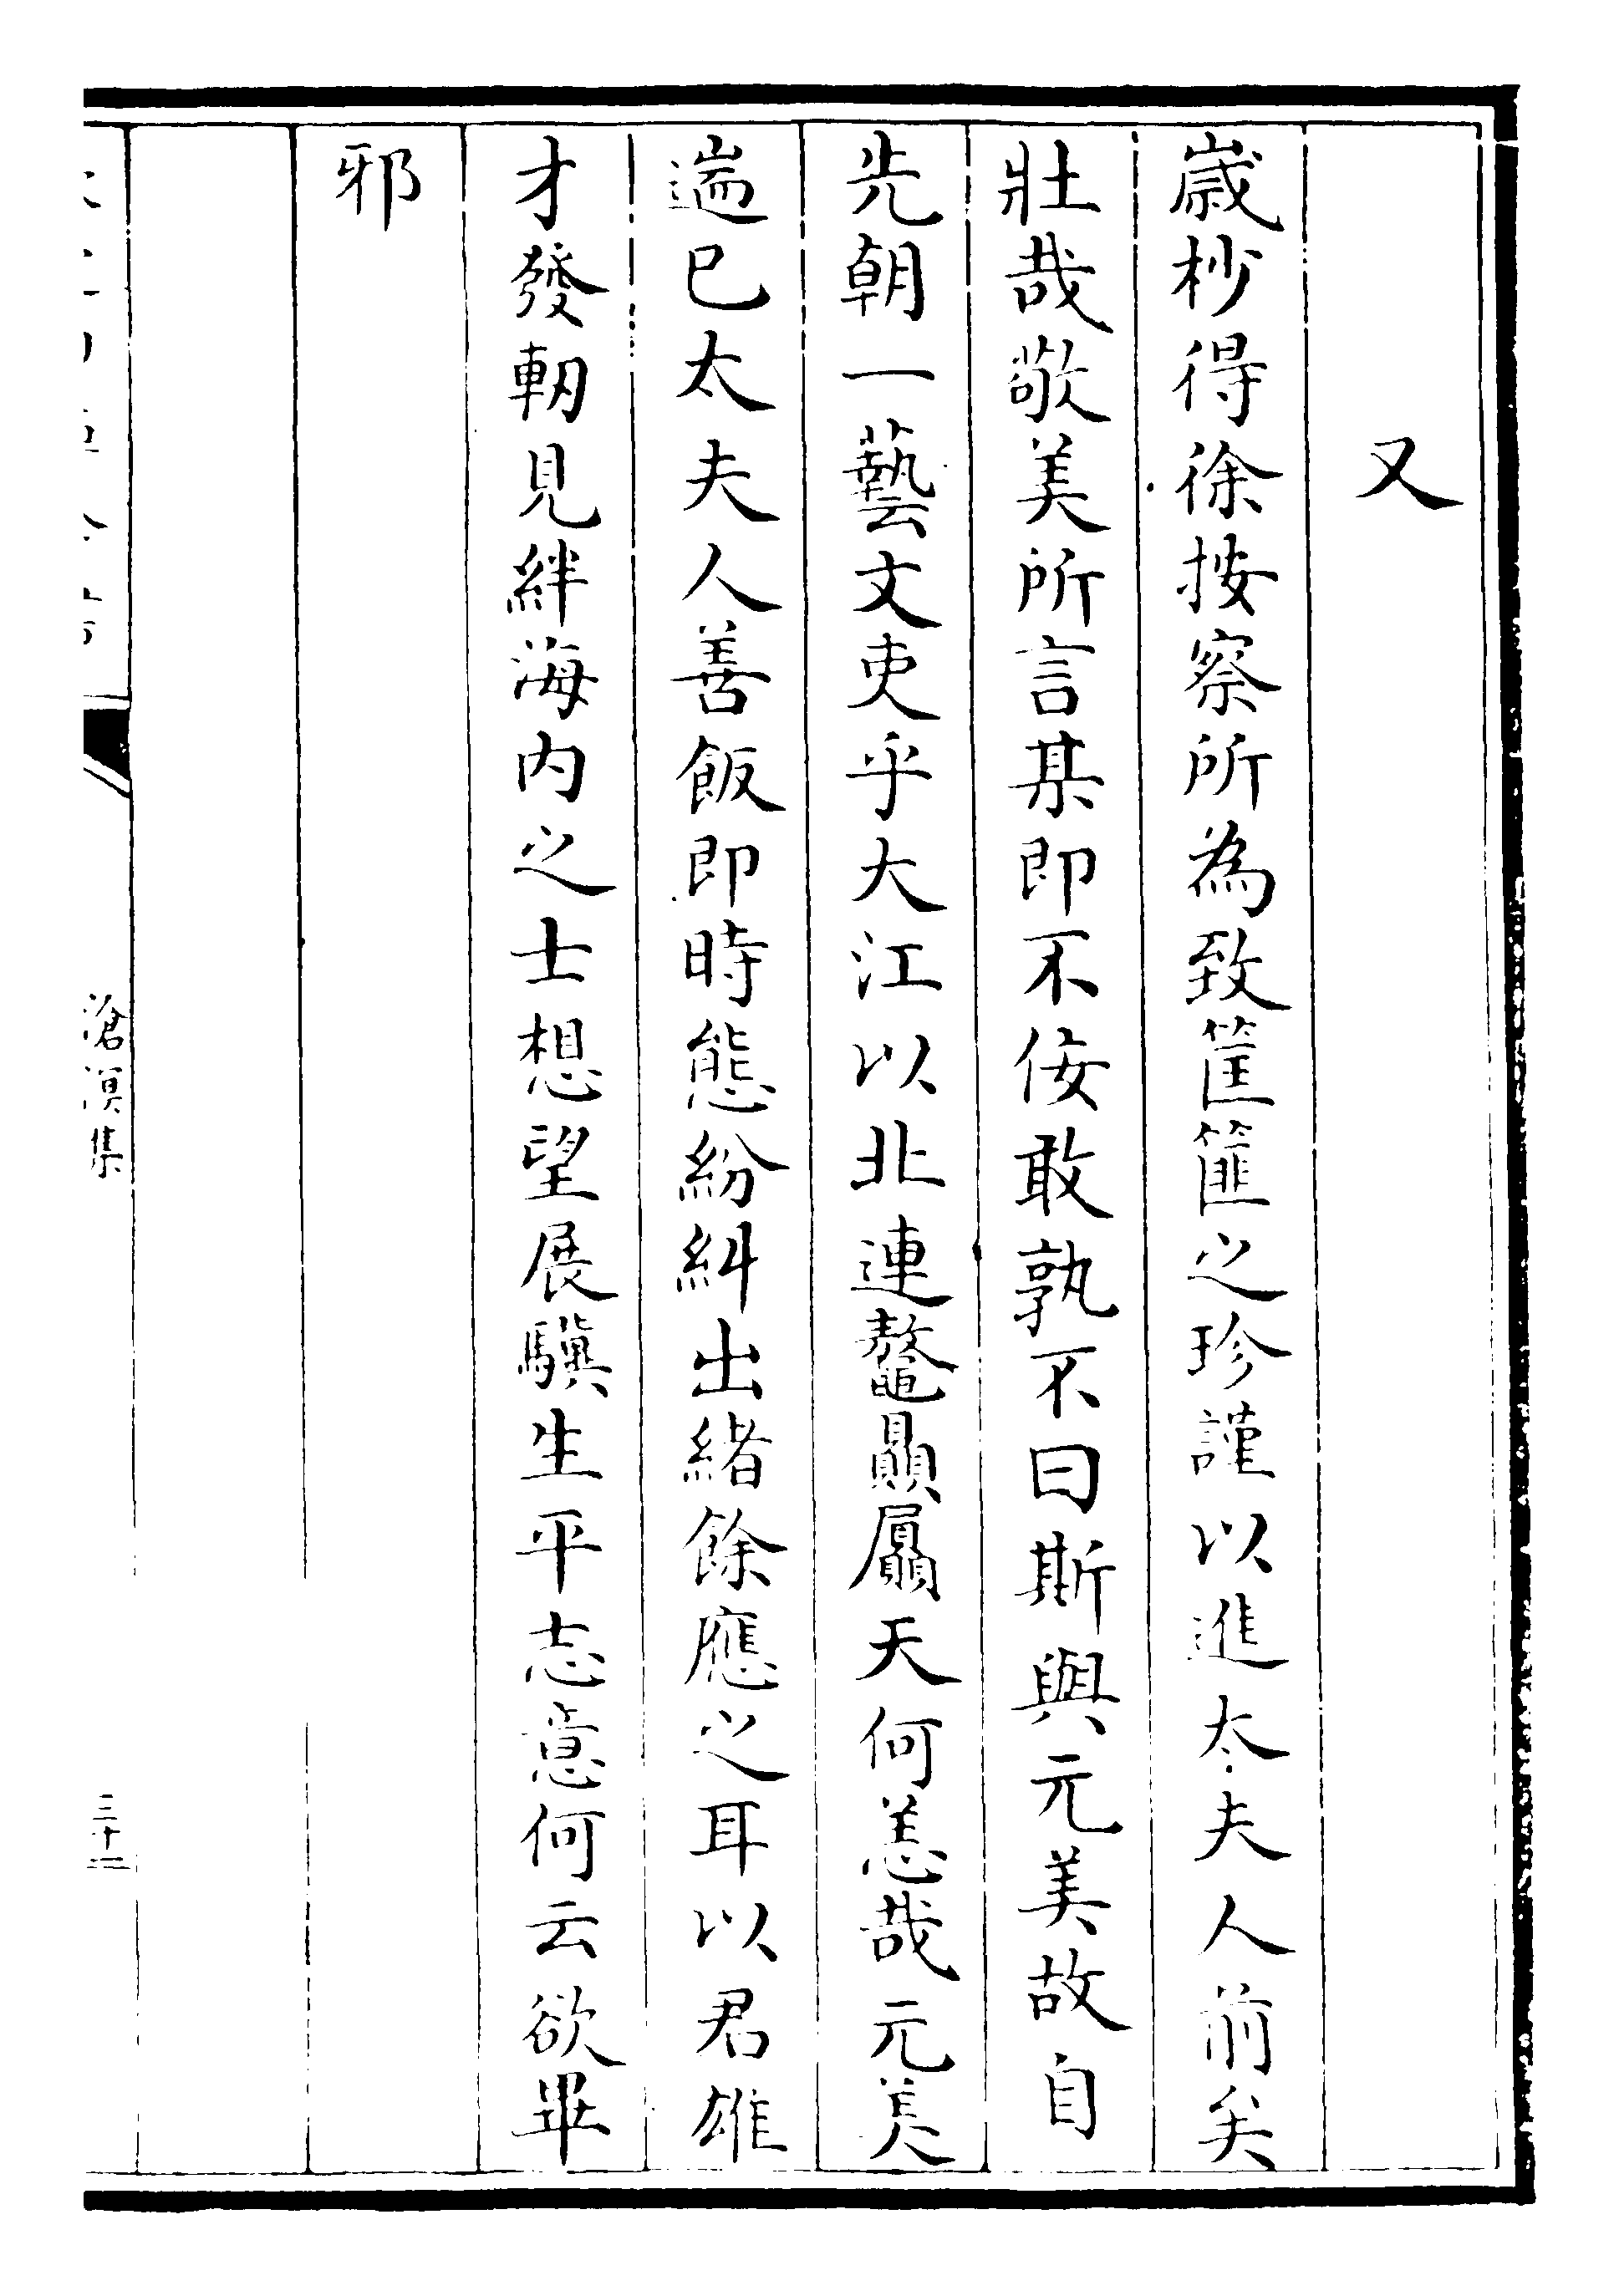 又
嵗杪得徐按察所為致筐篚之珍謹以進太夫人前矣
壯哉敬美所言某即不佞敢孰不曰斯與元美故自
先朝一藝文吏乎大江以北連鼇贔屭天何恙哉元美
遄已太夫人善飯即時態紛糾出緒餘應之耳以君雄
才發軔見絆海内之士想望展驥生平志意何云欲畢
邪
滄溟集
三十二